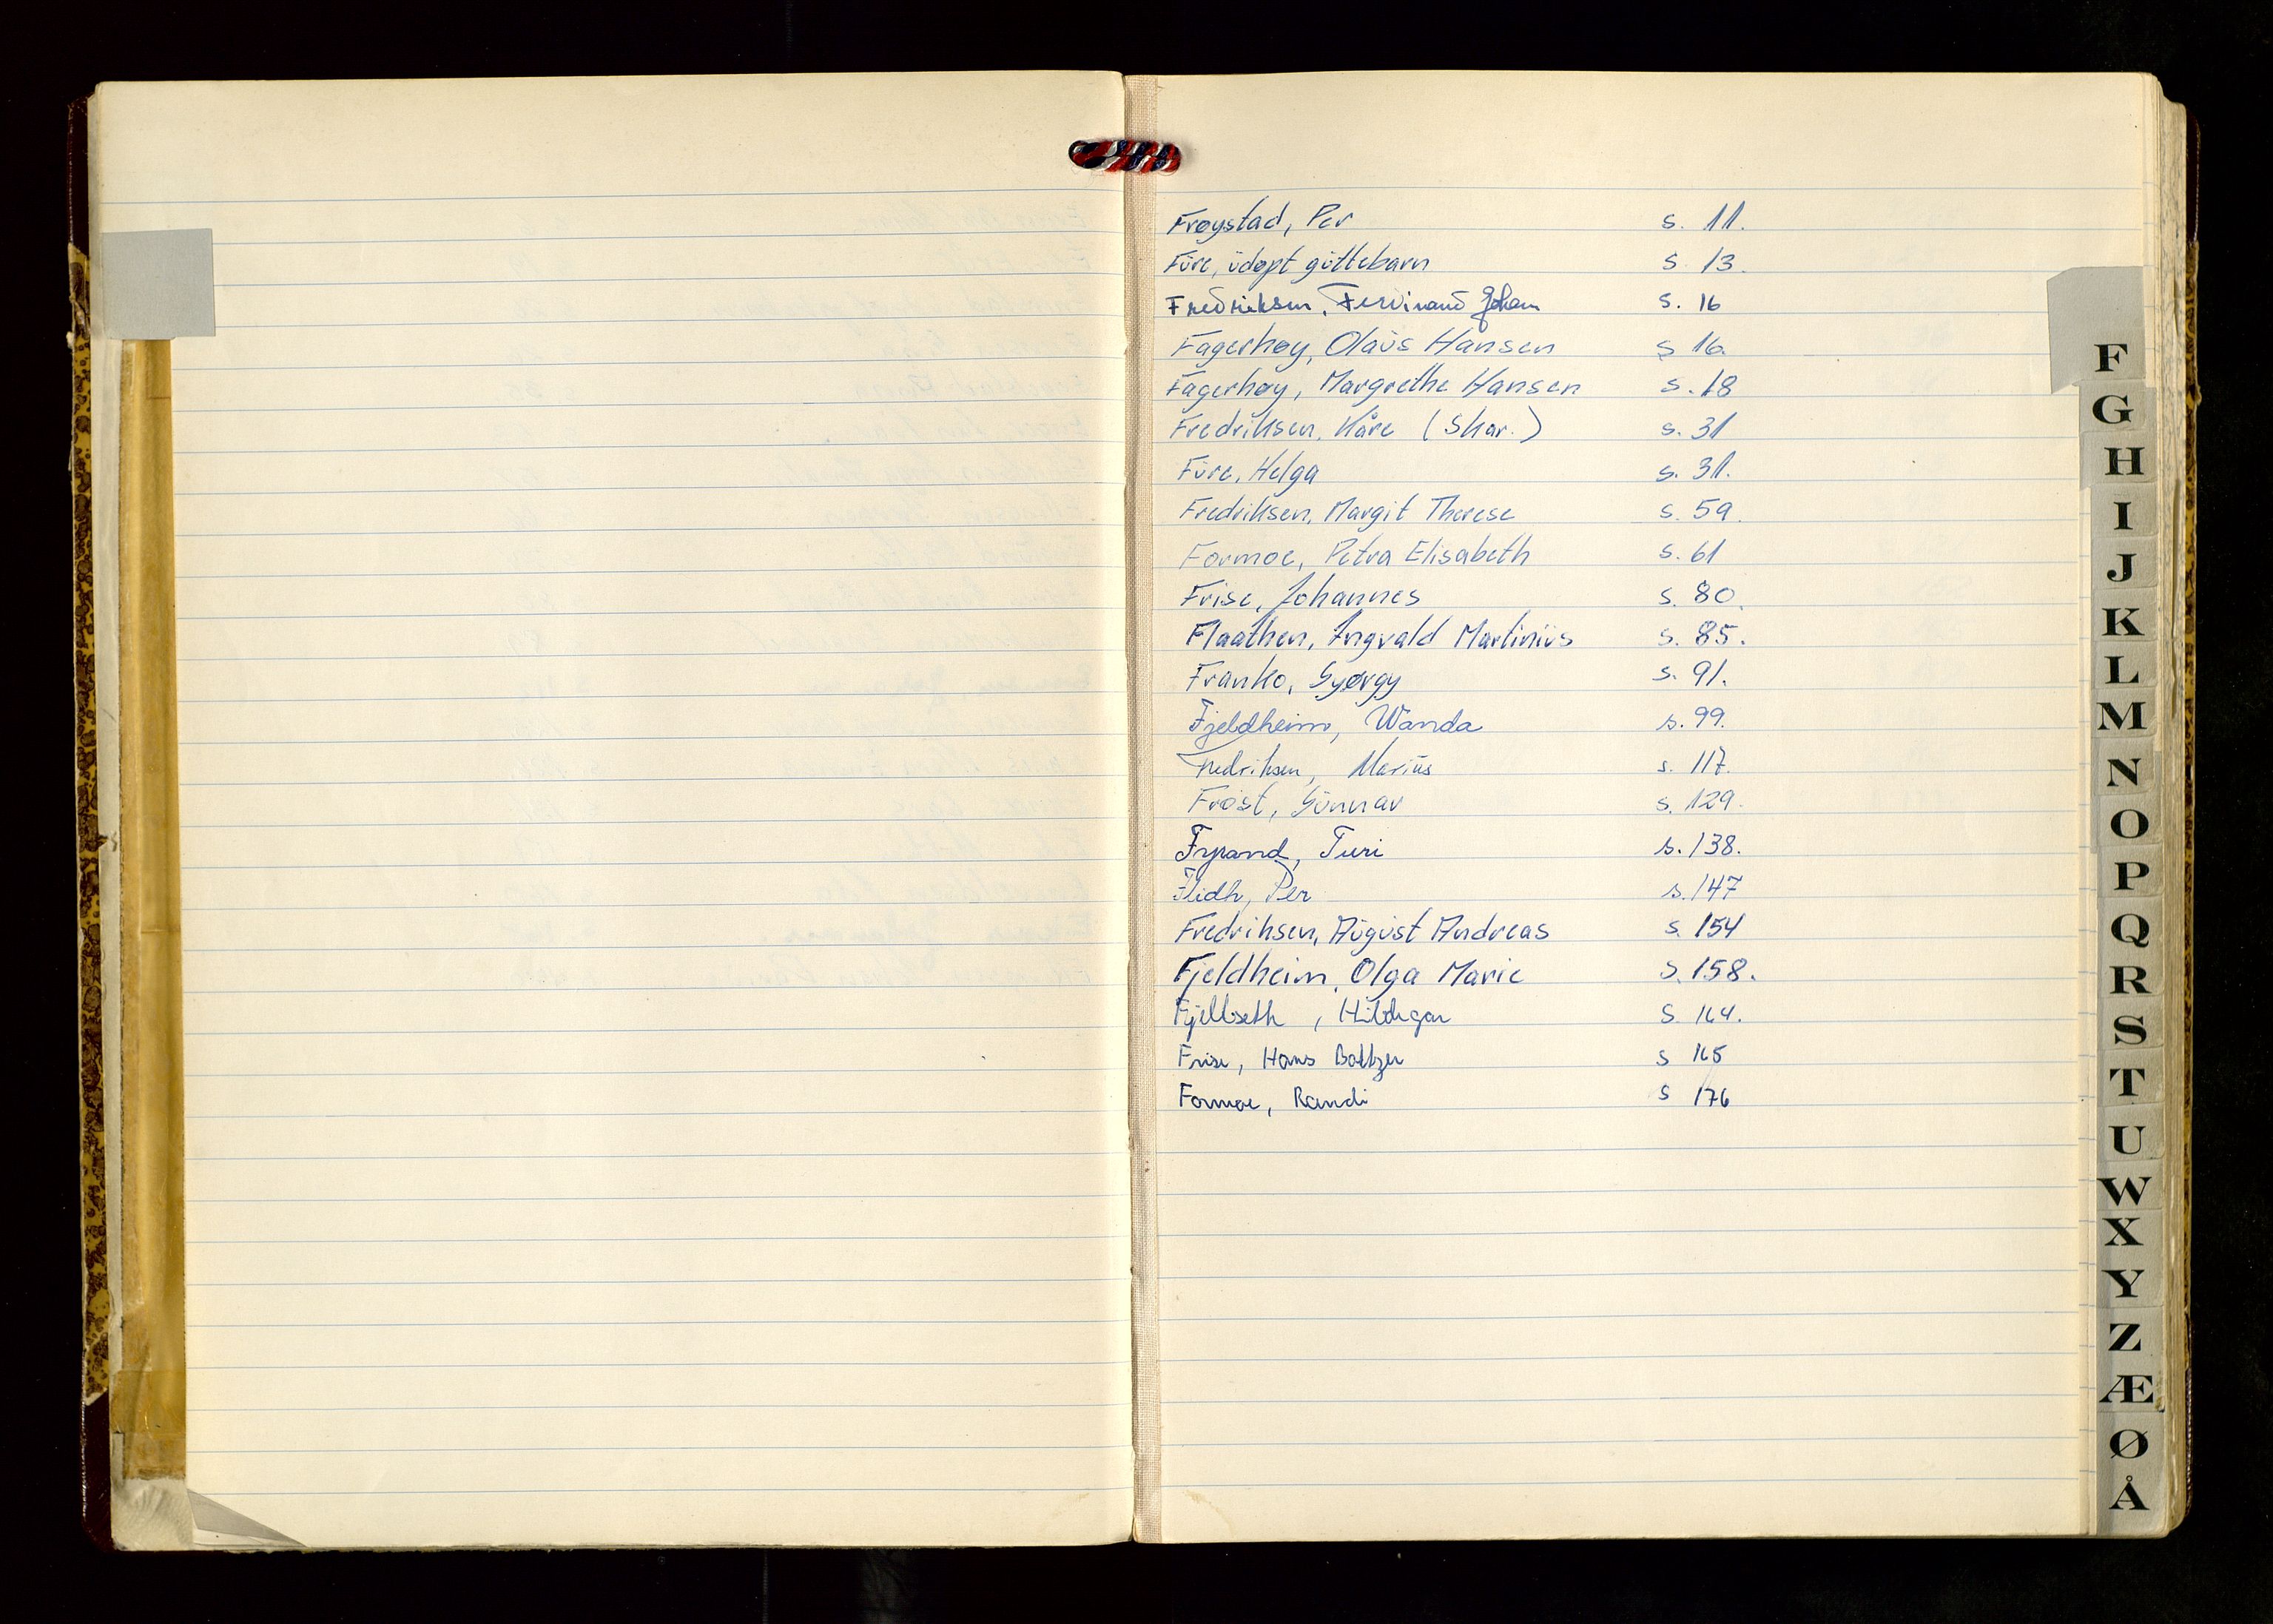 Frøystad, Per s. 11.
Fure, udøpt guttebarn s. 13.
Fredriksen, Ferdinand Johan s. 16
Fagerhøy, Olaus Hansen s 16.
Fagerhøy, Margrethe Hansen s. 18
Fredriksen, Kåre (Skar.) s. 31
Fure, Helga s. 31.
Fredriksen, Margit Therese s. 59.
Formoe, Petra Elisabeth s. 61
Frise, Johannes s. 80.
Flaathen, Ingvald Martinius s. 85.
Franko, György s. 91.
Fjeldheim, Wanda s. 99.
Fredriksen, Marius s. 117.
Frost, Gunnar s. 129.
Fyrand, Turi s. 138.
Flidh, Per s. 147
Fredriksen, August Andreas s. 154
Fjeldheim, Olga Marie s. 158.
Fjellseth, Hildegar s. 164.
Frise, Hans Baltzer s 165
Formoe, Randi s 176
F
G
H
I
J
K
L
M
N
O
P
Q
R
S
T
U
W
X
Y
Z
Æ
Ø
Å